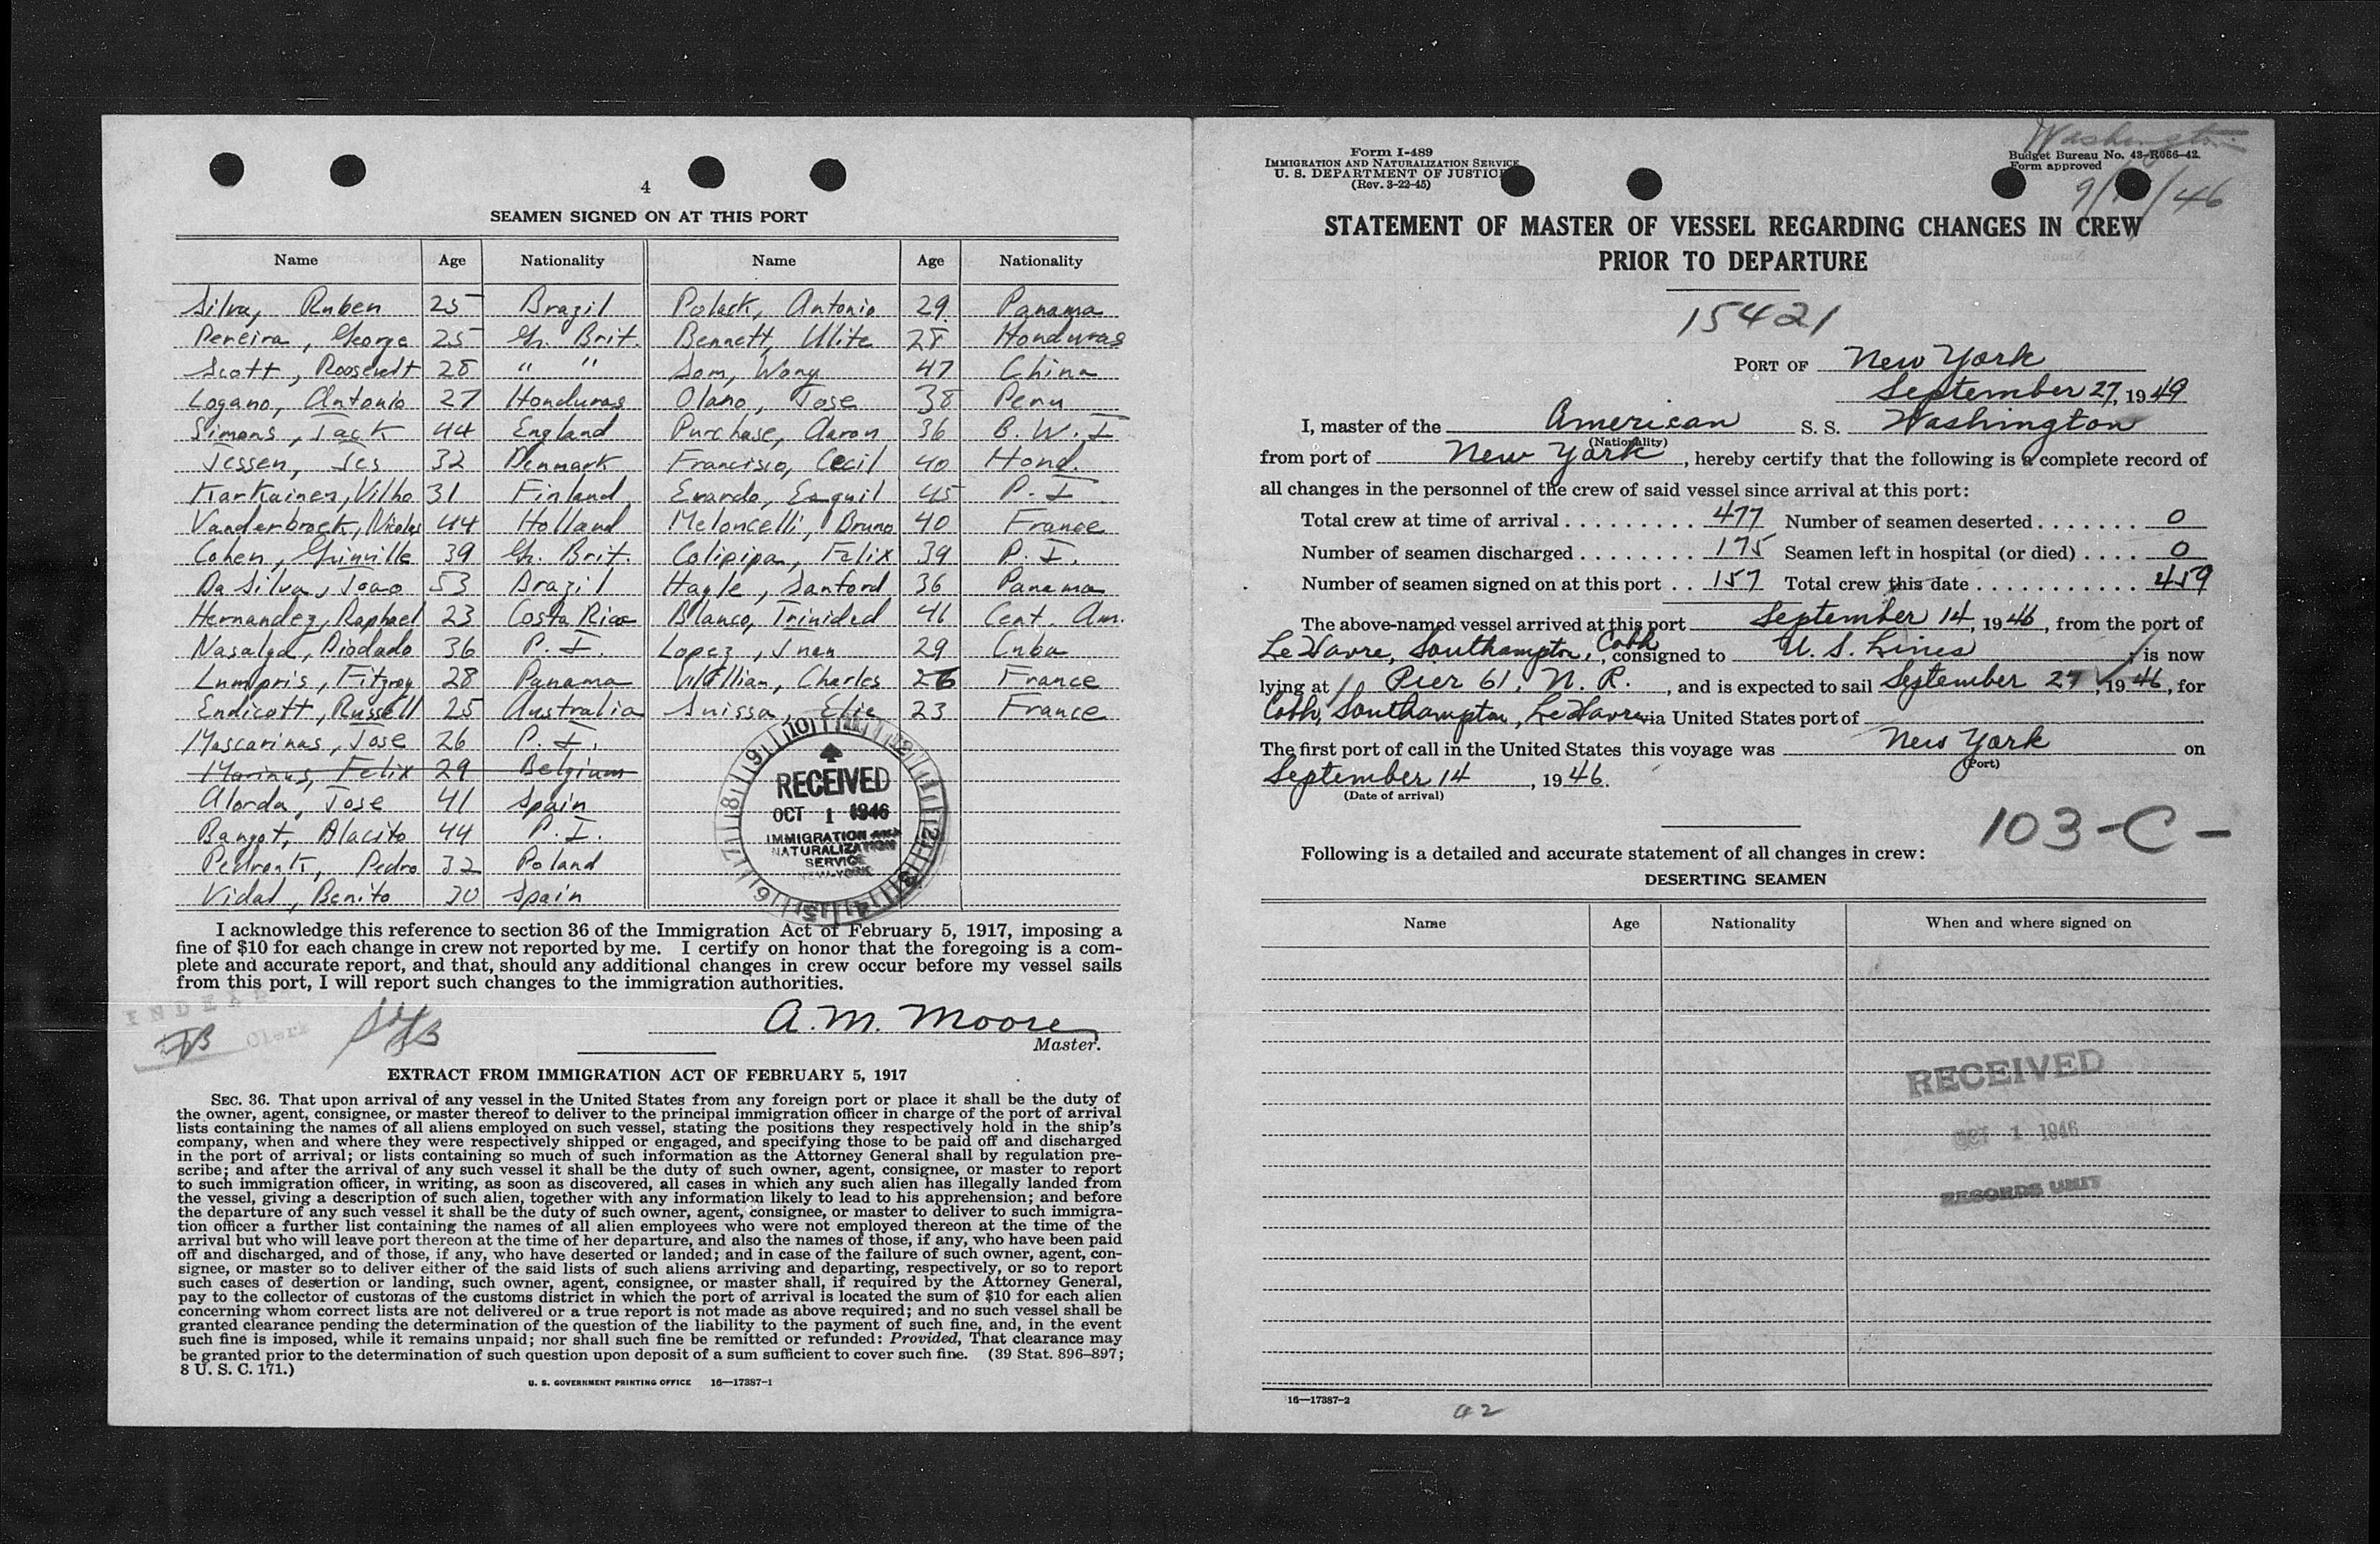 4
SEAMEN SIGNED ON AT THIS PORT
Name Age Nationality Name Age Nationality
Silva, Ruben 25 Brazil Polack, Antonio 29 Panama
Pereira, George 25 Gr. Brit. Bennett, Ulite 28 Honduras
Scott, Roosevelt 28 " " Som, Wong 47 China
Logano, Antonio 27 Honduras Olano, Jose 38 Peru
Simons, Jack 44 England Purchase, Aaron 36 B. W. I
Jessen, Jes 32 Denmark Francisco, Cecil 40 Hond.
Karkainen, Vilho 31 Finland Evardo, Esquil 45 P. I
Vanderbrock, Nicolas 44 Holland Meloncelli, Bruno 40 France
Cohen, Grinville 39 Gr. Brit. Colipipa, Felix 39 P. I.
Da Silva, Joao 53 Brazil Hayle, Sanford 36 Panama
Hernandez, Raphael 23 Costa Rica Blanco, Trinided 46 Cent. Am.
Nasalga, Diodado 36 P. I. Lopez, Juan 29 Cuba
Lumpris, Fitzroy 28 Panama Willian, Charles 26 France
Endicott, Russell 25 Australia Suissa, Elie 23 France
Mascarinas, Jose 26 P. I.
Marinus, Felix 29 Belgium
Alorda, Jose 41 Spain
Bangot, Blacito 44 P. I.
Pedronk, Pedro 32 Poland
Vidal, Benito 30 Spain
RECEIVED
OCT 1 1946
IMMIGRATION AND
NATURALIZATION
SERVICE
NEW YORK
I acknowledge this reference to section 36 of the Immigration Act of February 5, 1917, imposing a
fine of $10 for each change in crew not reported by me. I certify on honor that the foregoing is a com-
plete and accurate report, and that, should any additional changes in crew occur before my vessel sails
from this port, I will report such changes to the immigration authorities.
Clerk
A. M. Moore
Master.
EXTRACT FROM IMMIGRATION ACT OF FEBRUARY 5, 1917
SEC. 36. That upon arrival of any vessel in the United States from any foreign port or place it shall be the duty of
the owner, agent, consignee, or master thereof to deliver to the principal immigration officer in charge of the port of arrival
lists containing the names of all aliens employed on such vessel, stating the positions they respectively hold in the ship's
company, when and where they were respectively shipped or engaged, and specifying those to be paid off and discharged
in the port of arrival; or lists containing so much of such information as the Attorney General shall by regulation pre-
scribe; and after the arrival of any such vessel it shall be the duty of such owner, agent, consignee, or master to report
to such immigration officer, in writing, as soon as discovered, all cases in which any such alien has illegally landed from
the vessel, giving a description of such alien, together with any information likely to lead to his apprehension; and before
the departure of any such vessel it shall be the duty of such owner, agent, consignee, or master to deliver to such immigra-
tion officer a further list containing the names of all alien employees who were not employed thereon at the time of the
arrival but who will leave port thereon at the time of her departure, and also the names of those, if any, who have been paid
off and discharged, and of those, if any, who have deserted or landed; and in case of the failure of such owner, agent, con-
signee, or master so to deliver either of the said lists of such aliens arriving and departing, respectively, or so to report
such cases of desertion or landing, such owner, agent, consignee, or master shall, if required by the Attorney General,
pay to the collector of customs of the customs district in which the port of arrival is located the sum of $10 for each alien
concerning whom correct lists are not delivered or a true report is not made as above required; and no such vessel shall be
granted clearance pending the determination of the question of the liability to the payment of such fine, and, in the event
such fine is imposed, while it remains unpaid; nor shall such fine be remitted or refunded: Provided, That clearance may
be granted prior to the determination of such question upon deposit of a sum sufficient to cover such fine. (39 Stat. 896–897;
8 U. S. C. 171.)
U. S. GOVERNMENT PRINTING OFFICE 16—17387-1
Washington
Form I-489
IMMIGRATION AND NATURALIZATION SERVICE
U. S. DEPARTMENT OF JUSTICE
(Rev. 3-22-45)
Budget Bureau No. 43-R066-42.
Form approved
STATEMENT OF MASTER OF VESSEL REGARDING CHANGES IN CREW
PRIOR TO DEPARTURE
15421
PORT OF New York
September 27, 1949
I, master of the American S. S. Washington
(Nationality)
from port of New York, hereby certify that the following is a complete record of
all changes in the personnel of the crew of said vessel since arrival at this port:
Total crew at time of arrival 477 Number of seamen deserted 0
Number of seamen discharged 175 Seamen left in hospital (or died) 0
Number of seamen signed on at this port 157 Total crew this date 459
The above-named vessel arrived at this port September 14, 1946, from the port of
Le Havre, Southampton, Cobh, consigned to U. S. Lines, is now
lying at Pier 61, N. R., and is expected to sail September 27, 1946, for
Cobh, Southampton, Le Havre via United States port of
The first port of call in the United States this voyage was New York on
(Port)
September 14, 1946.
(Date of arrival)
103-C-
Following is a detailed and accurate statement of all changes in crew:
DESERTING SEAMEN
Name Age Nationality When and where signed on
RECEIVED
OCT 1 1946
RECORDS UNIT
16—17387-2